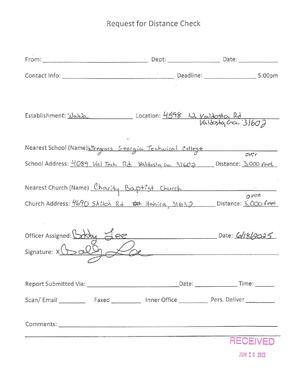 Request for Distance Check
From: Dept: Date:
Contact Info: Deadline: 5:00pm
Establishment: Location: 4598 N Valdosta Rd
Valdosta, Ga. 31602
Nearest School (Name) Georgia Technical College
over
School Address: 4089 Val Tech Rd Valdosta Ga 31602 Distance: 3,000 feet
Nearest Church (Name) Charity Baptist Church
over
Church Address: 4690 Shiloh Rd Hahira, 31632 Distance: 3,000 feet
Officer Assigned: Bobby Lee Date: 6/18/2025
Signature: x
Report Submitted Via: Date: Time:
Scan/ Email Faxed Inner Office Pers. Deliver
Comments:
RECEIVED
JUN